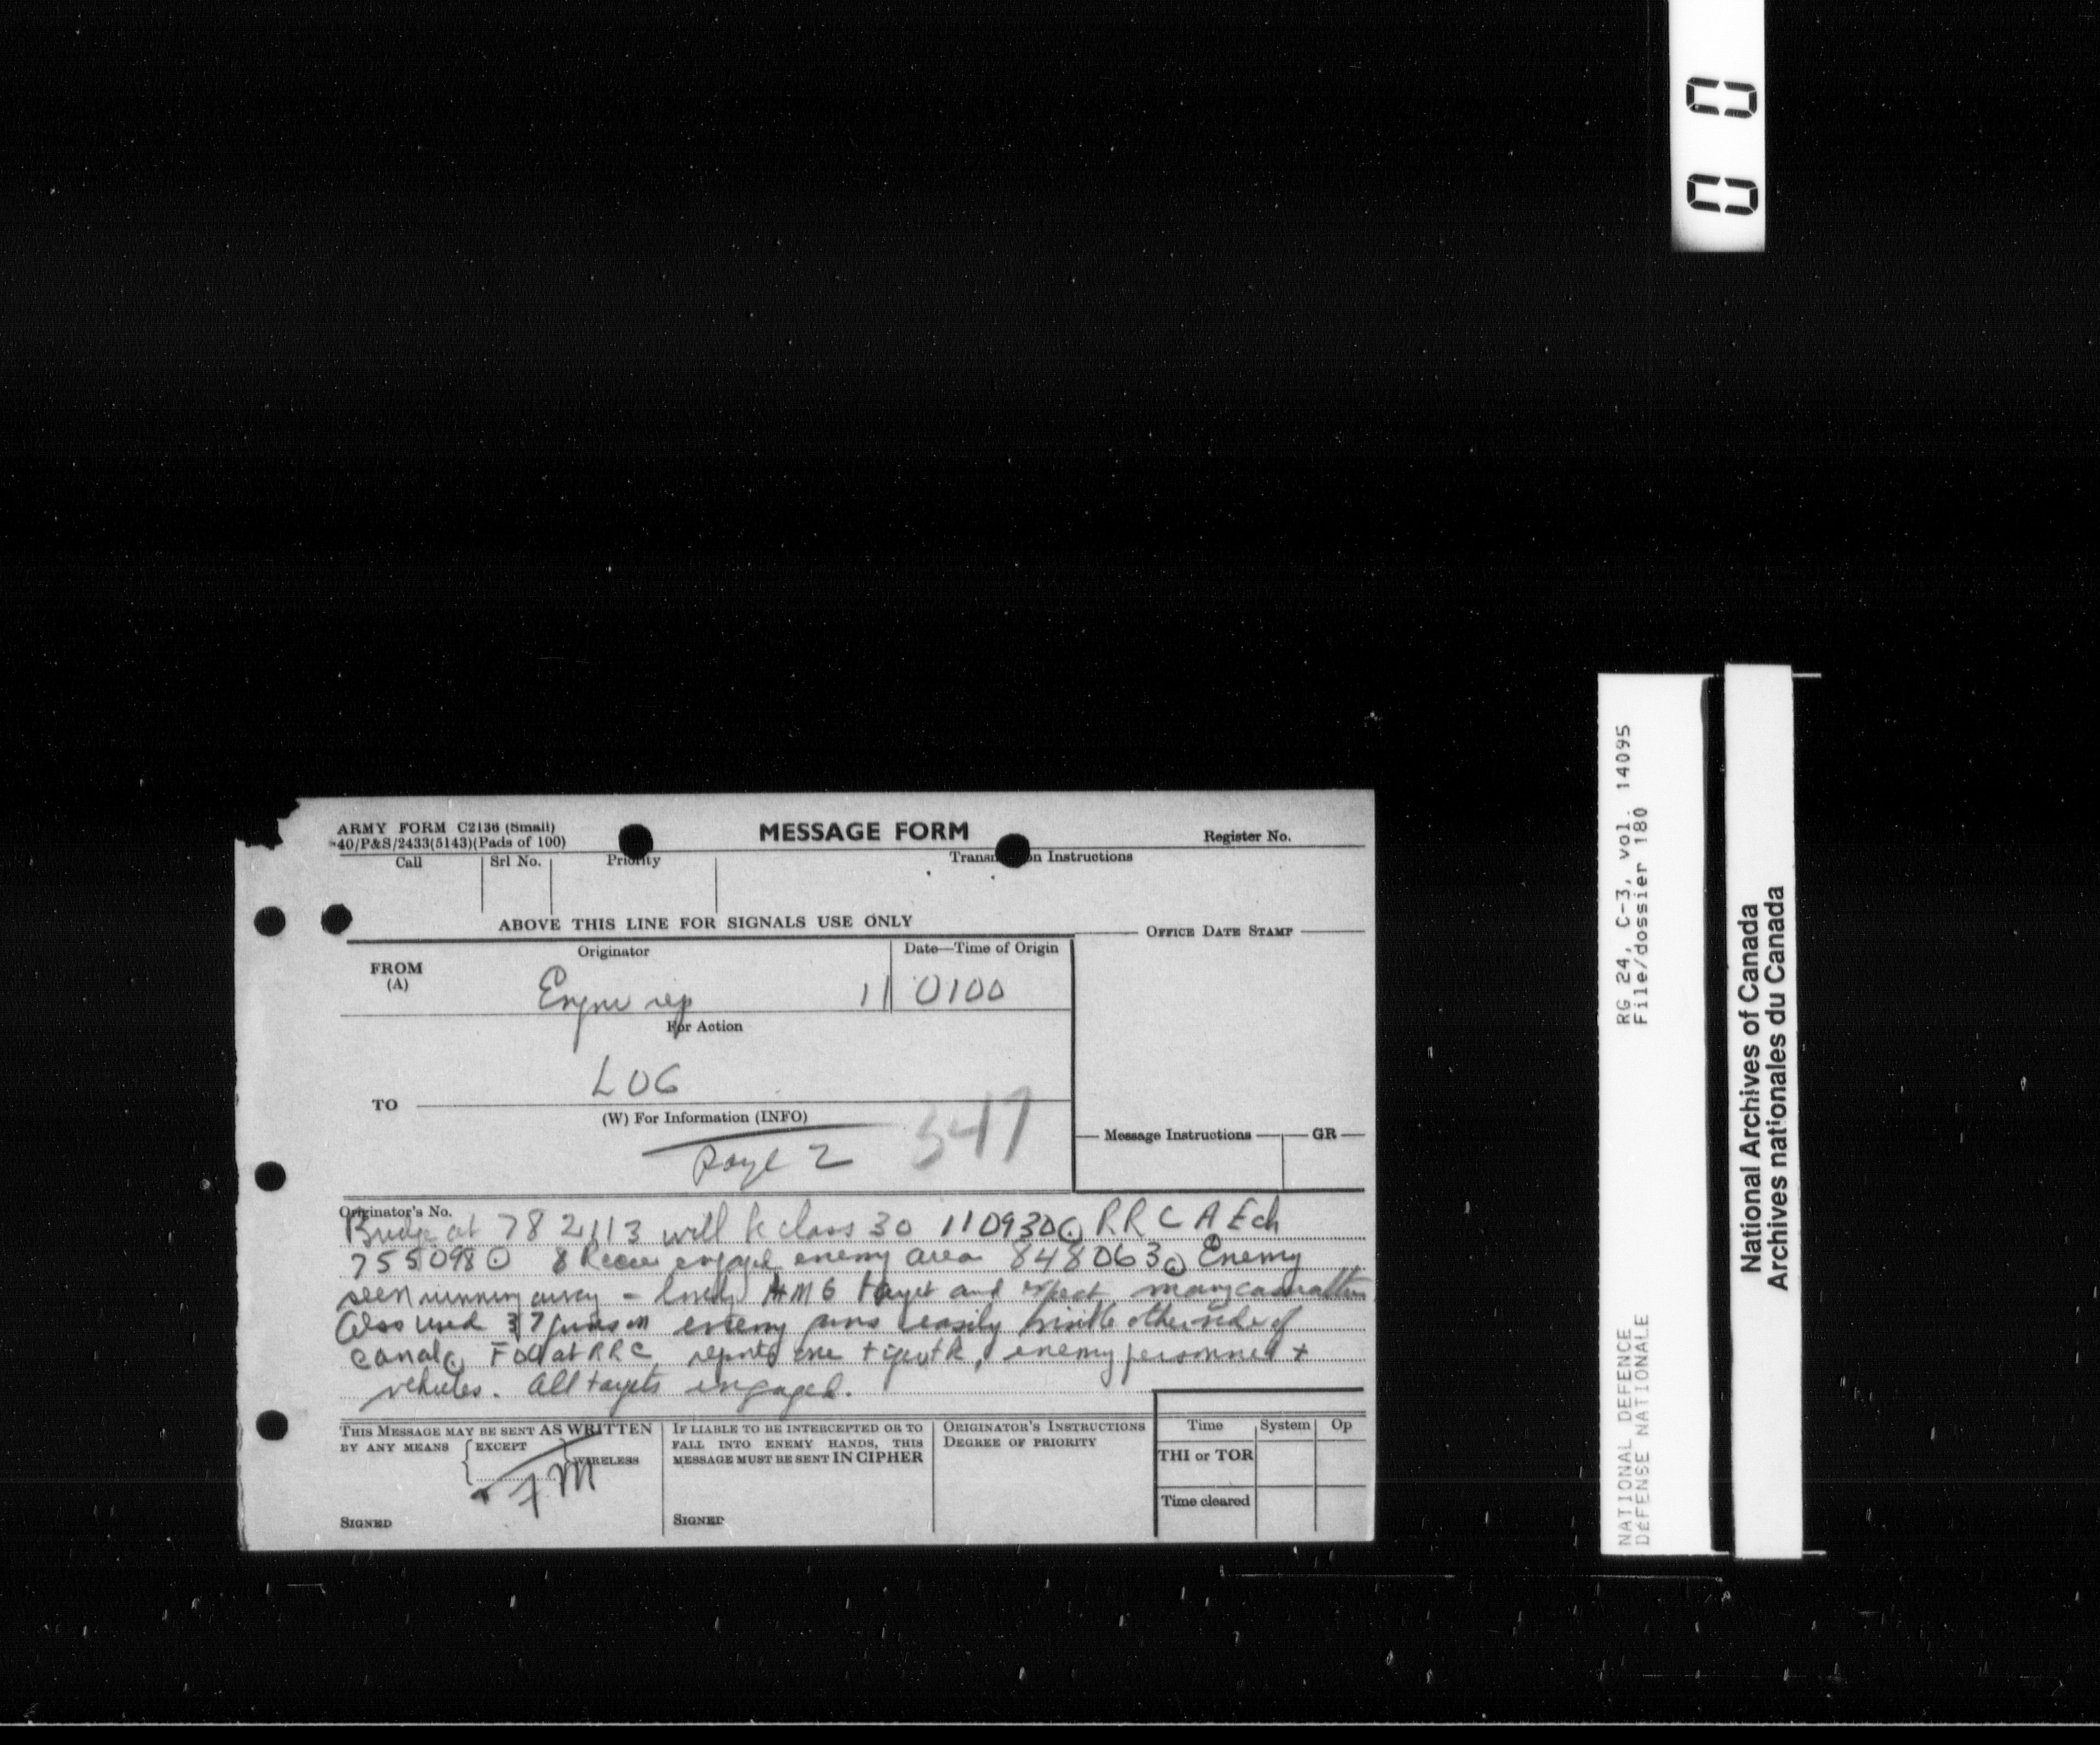 00
ARMY FORM C2136 (Small)
40/P&S/2433(5143)(Pads of 100)
MESSAGE FORM
Register No.
Call
Srl No.
Priority
Instructions
ABOVE THIS LINE FOR SIGNALS USE ONLY
OFFICE DATE STAMP
Originator
Date—Time of Origin
FROM
(A)
11 0100
For Action
LOG
TO
(W) For Information (INFO)
Page 2
347
Message Instructions
GR
Originator's No.
Bridge at 782113 will be class 30 110930 RRC A Ech
755098 8 Recce engage enemy area 848063 Enemy
seen running away - lovely HMG target and expect many casualties
Also used 37 guns on enemy guns easily visible other side of
canal at RRC reports one enemy personnel +
vehicles. All targets engaged.
THIS MESSAGE MAY BE SENT AS WRITTEN
BY ANY MEANS
EXCEPT
WIRELESS
FM
SIGNED
IF LIABLE TO BE INTERCEPTED OR TO
FALL INTO ENEMY HANDS, THIS
MESSAGE MUST BE SENT IN CIPHER
SIGNED
ORIGINATOR'S INSTRUCTIONS
DEGREE OF PRIORITY
Time
System
Op
THI or TOR
Time cleared
RG 24, C-3, vol. 14095
File/dossier 180
NATIONAL DEFENCE
DÉFENSE NATIONALE
National Archives of Canada
Archives nationales du Canada